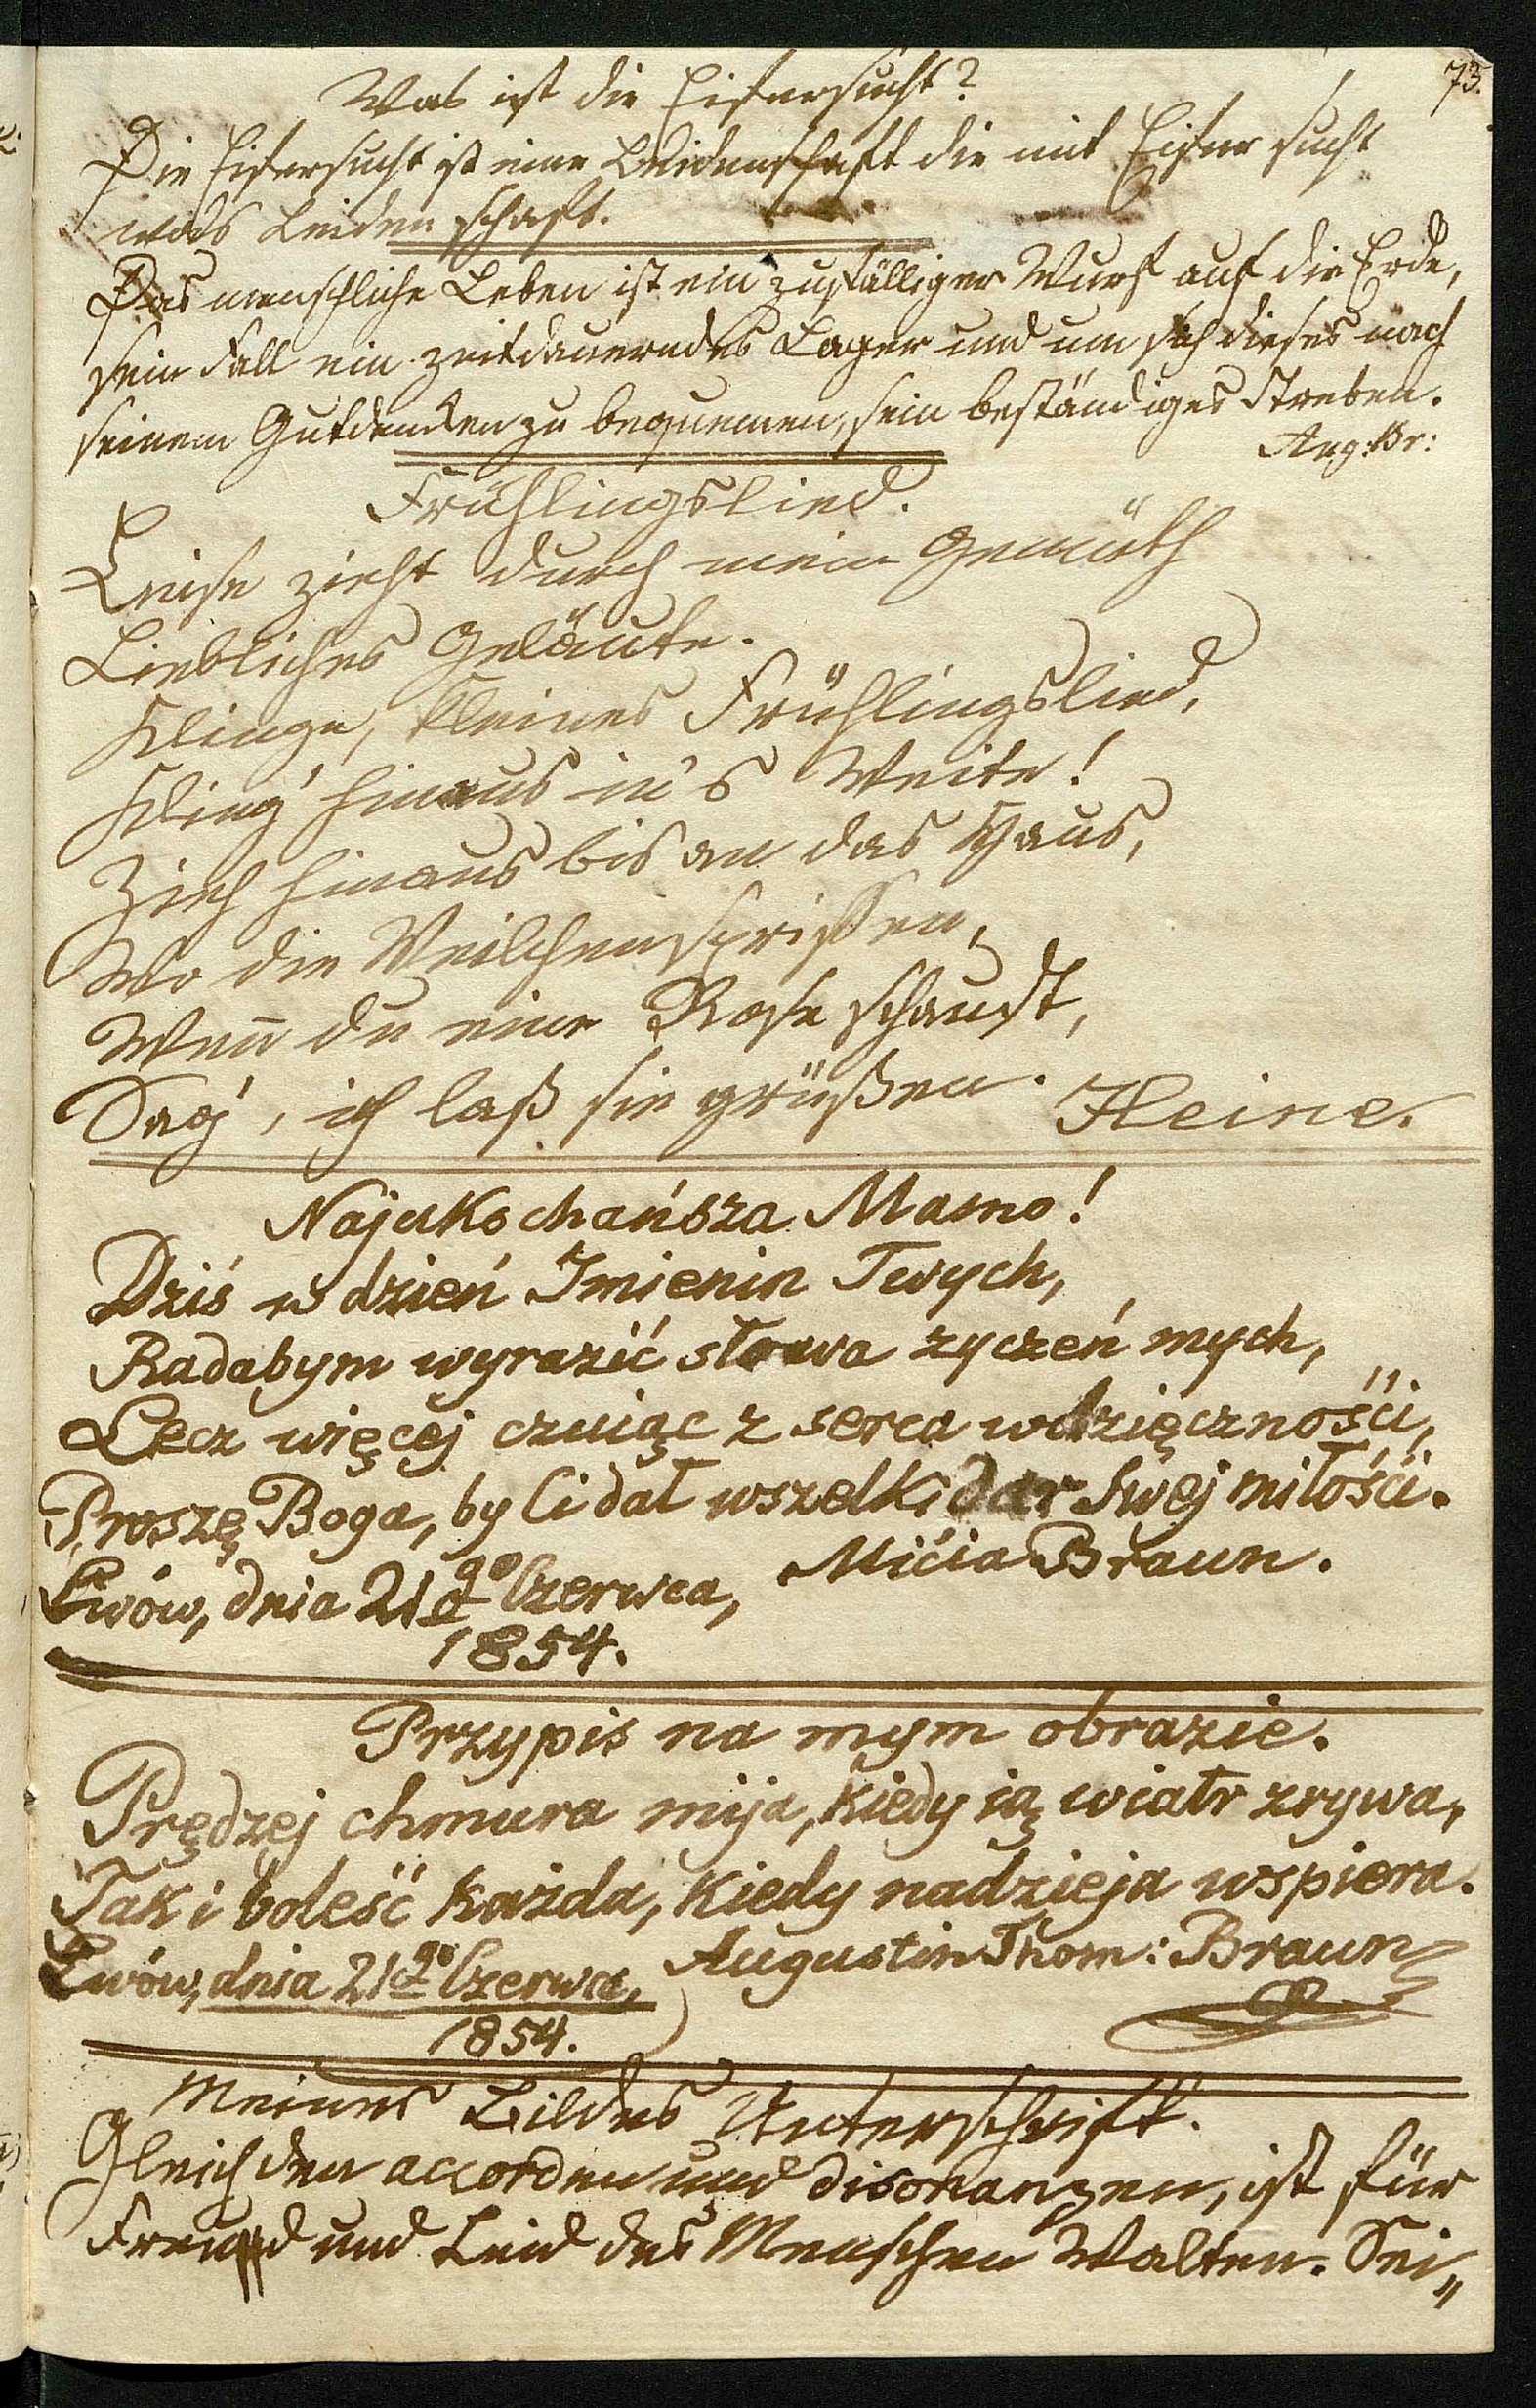 73.
Was ist die Eifersucht?
Die Eifersucht ist eine Leidenschaft die mit Eifer sucht
was Leiden schaft.
Das menschliche Leben ist ein zufälliger Wurf auf die Erde,
sein Fall ein zeitdauerndes Lager und um sich dieses nach
seinem Gutdenken zu bequemen, sein beständiges Streben.
Aug: Br:
Frühlingslied.
Leise zieht durch mein Gemüth
Liebliches Geläute.
Klinge, kleines Frühlingslied,
Kling' hinaus in's Weite!
Zieh hinaus bis an das Haus,
Wo die Veilchen sprißen,
Weñ du eine Rose schaust,
Sag', ich laß sie grüßen.
Heine.
Najukochańsza Mamo!
Dziś w dzień Imienin Twych,
Radabym wyrazić słowa zyczeń mych,
Lecz więcéj czuiąc z serca wdzięcznośći,
Proszę Boga, by Ci dał wszelki dar Swéj miłośći.
Mićia Braun.
Lwów, dnia 21go Czerwca,
1854.
Przypis na mym obrazie.
Prędzéj chmura mija, kiedy ią wiatr zrywa,
Tak i boleść każda, kiedy nadzieja wspiera.
Augustin Thom: Braun
Lwów, dnia 21go Czerwca,
1854.
Meines Bildes Unterschrift.
Gleich den accorden und disonanzen, ist für
Freud und Leid des Menschen Walten. Sei„